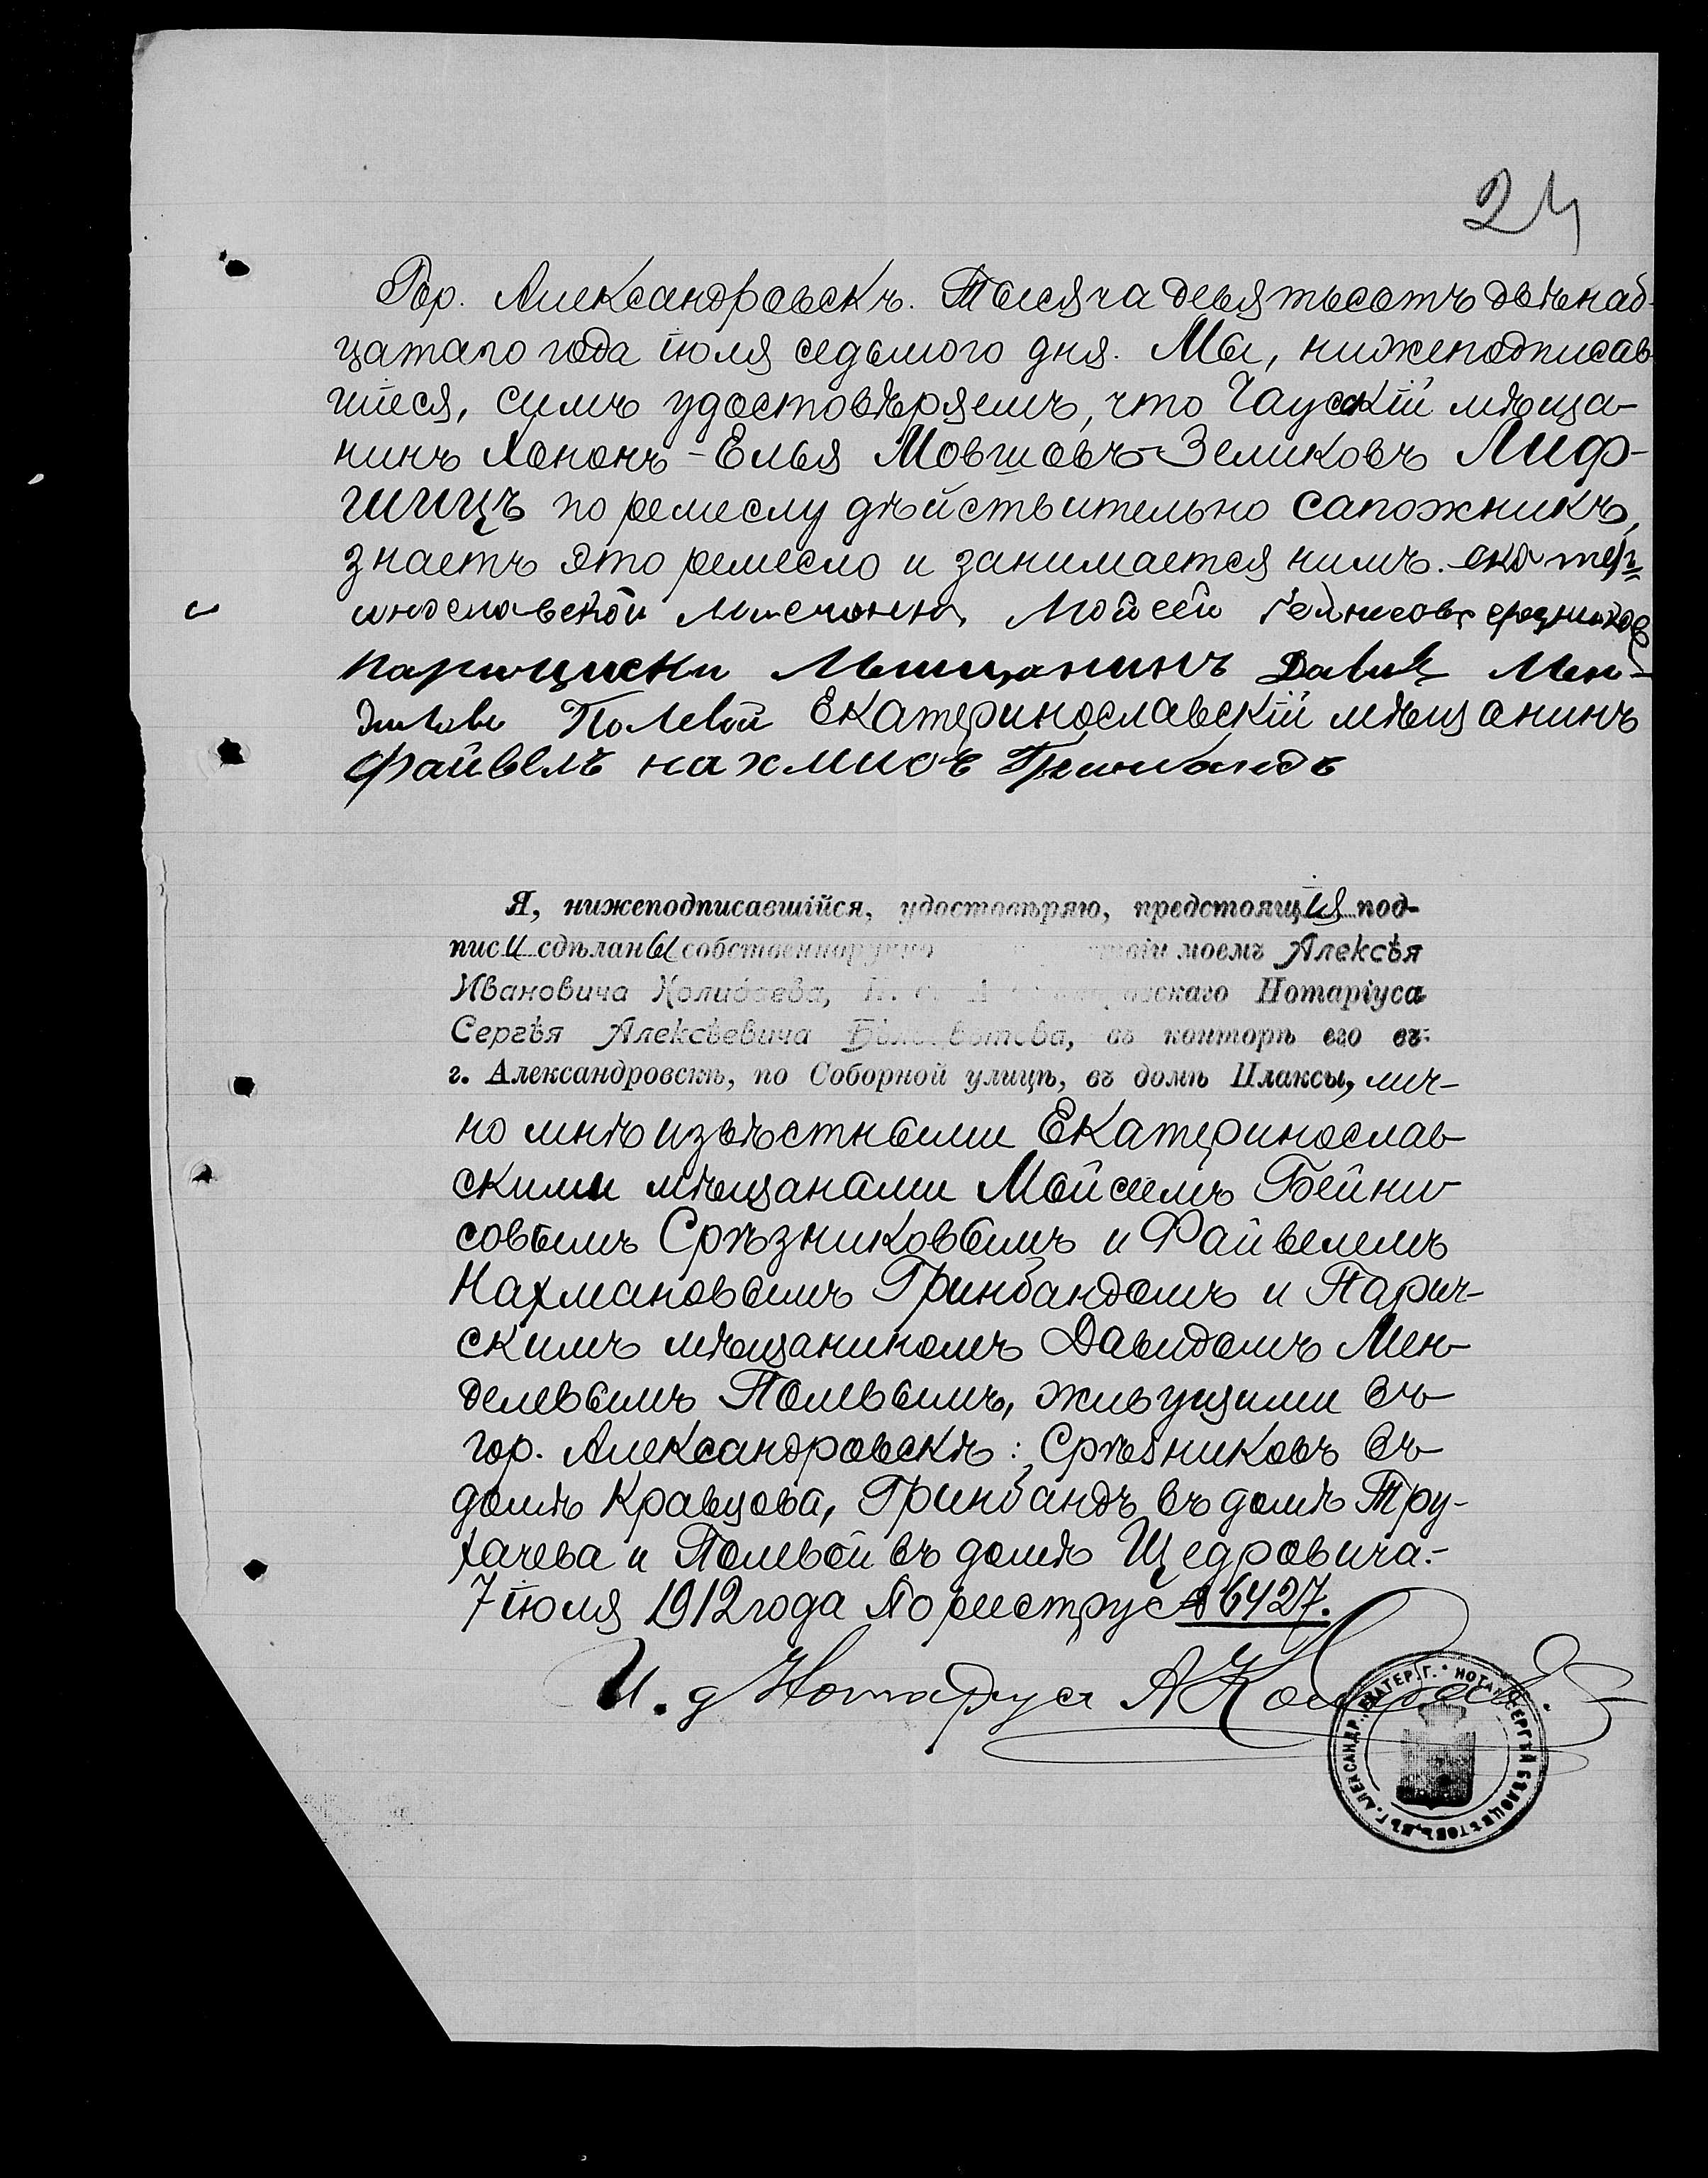 24
Гор. Александровскъ. Тысяча девятьсотъ двѣнад-
цатаго года іюля седьмого дня. Мы, нижеподписав-
шіеся, симъ удостовѣряемъ, что Чаускій мѣща-
нинъ Хононъ-Елья Мовшовъ-Зеликовъ Лиф-
шицъ по ремеслу дѣйствительно сапожникъ,
знаетъ это ремесло и занимается имъ. екатер-
инославской Мойсей
Мещанинъ Давид Мен-
Полевой Екатеринославскій мѣщанинъ
Файвелъ Гринбандъ
Я, нижеподписавшійся, удостовѣряю, предстоящія под-
писи сдѣланы собственноручно моемъ Алексѣя
Ивановича Нотаріуса
Сергѣя Алексѣевича въ конторѣ его въ
г. Александровскѣ, по Соборной улицѣ, въ домѣ Плаксы, лич-
но мнѣ извѣстными Екатеринослав-
скими мѣщанами Мойсеемъ Бейни-
совымъ Срѣзниковымъ и Файвелемъ
Нахмановымъ Гринбандомъ и Парич-
скимъ мѣщаниномъ Давидомъ Мен-
делевымъ Полевымъ, живущими въ
гор. Александровскѣ: Срѣзниковъ въ
домѣ Кравцова, Гринбандъ въ домѣ Тру-
хачева и Полевой въ домѣ Щедровича.-
7 іюля 1912 года По реестру № 6427.
И. д Нотаріуса
АЛЕКСАНДР., ЕКАТЕР. Г. * НОТАР. СЕРГѢЙ БѢЛОЦВѢТОВЪ, ВЪ Г.